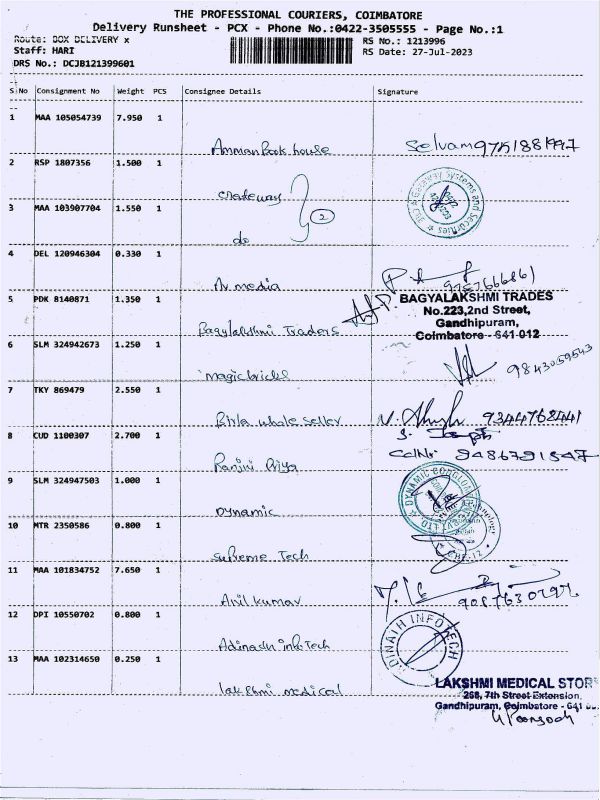 THE PROFESSIONAL COURIERS, COIMBATORE
Delivery Runsheet - PCX - Phone No.:0422-3505555 - Page No.:1
Route: BOX DELIVERY x
RS No.: 1213996
Staff: HARI
RS Date: 27-Jul-2023
DRS No.: DCJB121399601
S No Consignment No Weight PCS Consignee Details Signature
1 MAA 105054739 7.950 1
Amman Book house Selvam
2 RSP 1807356 1.500 1
Crateway
2
3 MAA 103907704 1.550 1
do
4 DEL 120946304 0.330 1
Av media
5 PDK 8140871 1.350 1
BAGYALAKSHMI TRADES
No.223,2nd Street,
Gandhipuram,
Coimbatore - 641 012
Bagylakshmi Traders
6 SLM 324942673 1.250 1
magicbricks 9843059543
7 TKY 869479 2.550 1
Birla whole seller 9344768441
8 CUD 1100307 2.700 1
Ranjini Priya 9486791547
9 SLM 324947503 1.000 1
Dynamic
10 MTR 2350586 0.800 1
Supreme Tech
11 MAA 101834752 7.650 1
Anil kumar
12 DPI 10550702 0.800 1
Adinash info Tech
DINATH INFOTECH
13 MAA 102314650 0.250 1
lakshmi medical
LAKSHMI MEDICAL STOR
268, 7th Street Extension,
Gandhipuram, Coimbatore - 641